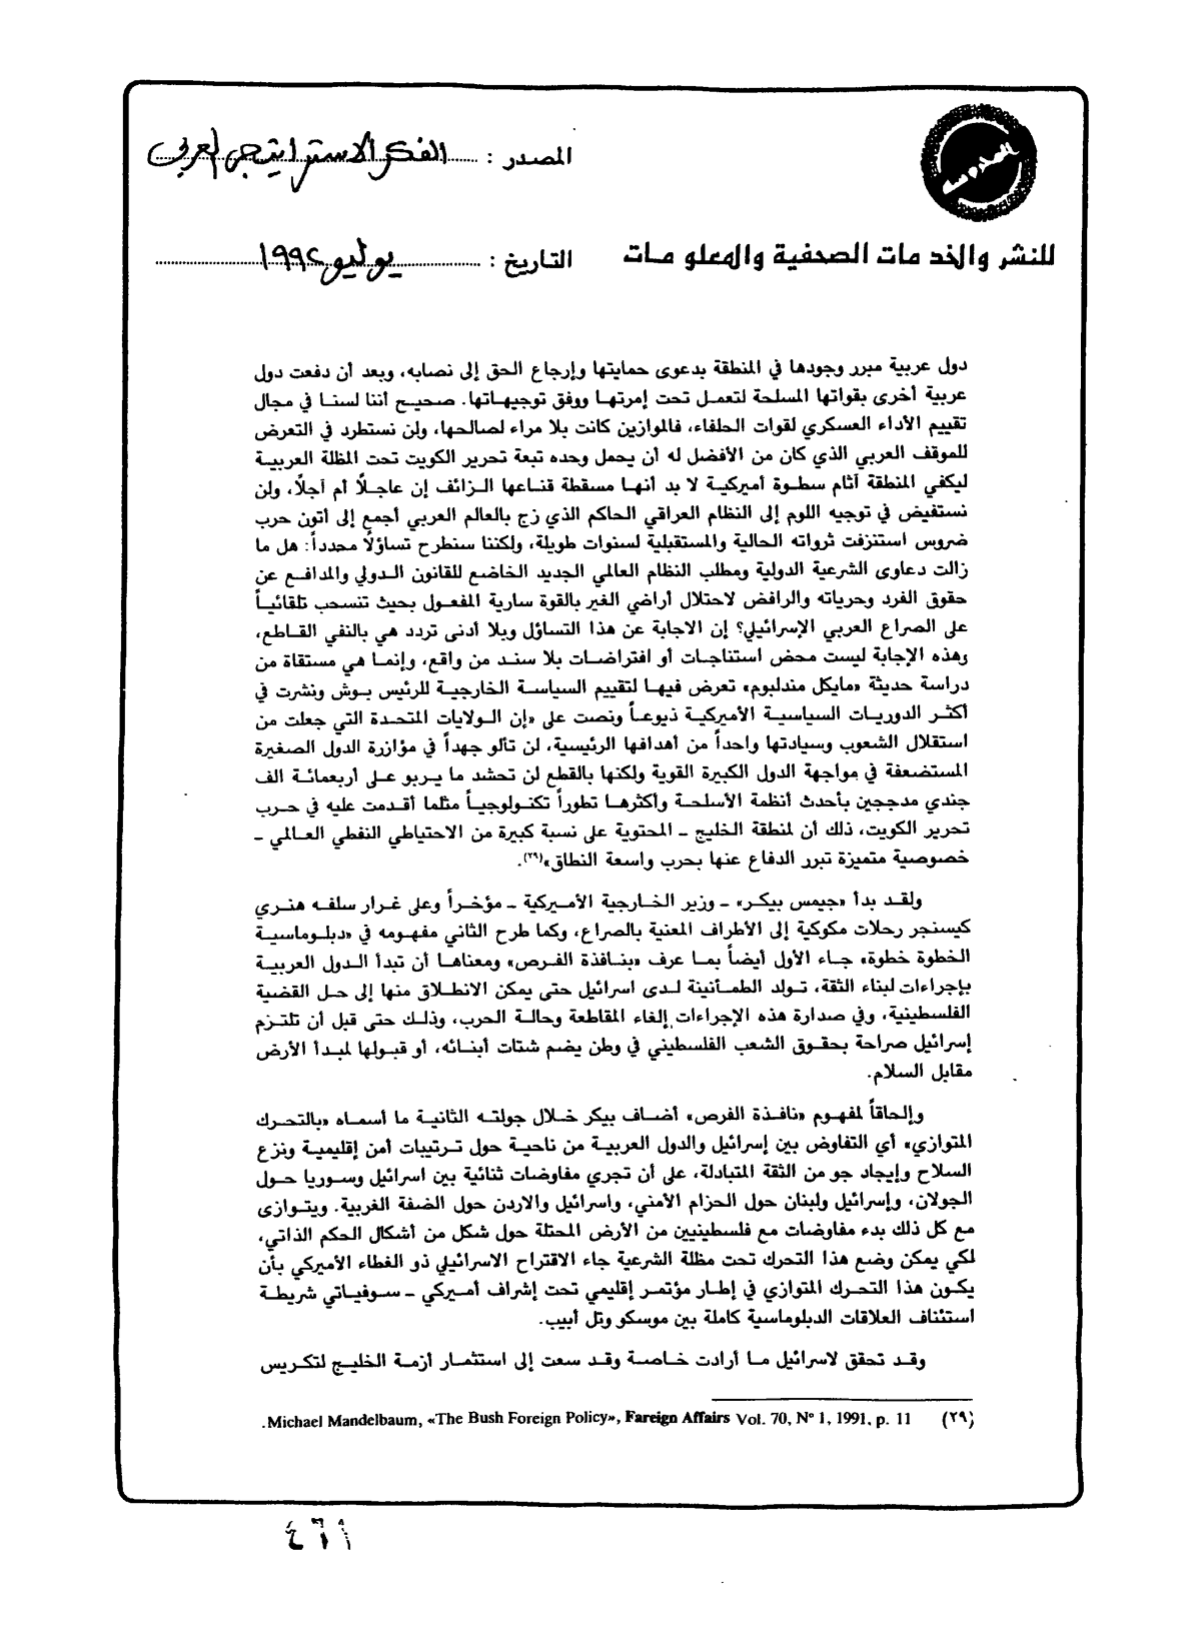 المصدر : الفكر الاستراتيجي العربي
للنشر والخدمات الصحفية والمعلومات
التاريخ : يوليو ١٩٩٢
دول عربية مبرر وجودها في المنطقة بدعوى حمايتها وإرجاع الحق إلى نصابه، وبعد أن دفعت دول
عربية أخرى بقواتها المسلحة لتعمل تحت إمرتها ووفق توجيهاتها. صحيح أننا لسنا في مجال
تقييم الأداء العسكري لقوات الحلفاء، فالموازين كانت بلا مراء لصالحها، ولن نستطرد في التعرض
للموقف العربي الذي كان من الأفضل له أن يحمل وحده تبعة تحرير الكويت تحت المظلة العربية
ليكفي المنطقة آثام سطوة أميركية لا بد أنها مسقطة قناعها الزائف إن عاجلًا أم آجلًا، ولن
نستفيض في توجيه اللوم إلى النظام العراقي الحاكم الذي زج بالعالم العربي أجمع إلى أتون حرب
ضروس استنزفت ثرواته الحالية والمستقبلية لسنوات طويلة، ولكننا سنطرح تساؤلًا محدداً: هل ما
زالت دعاوى الشرعية الدولية ومطلب النظام العالمي الجديد الخاضع للقانون الدولي والمدافع عن
حقوق الفرد وحرياته والرافض لاحتلال أراضي الغير بالقوة سارية المفعول بحيث تنسحب تلقائياً
على الصراع العربي الإسرائيلي؟ إن الاجابة عن هذا التساؤل وبلا أدنى تردد هي بالنفي القاطع،
وهذه الإجابة ليست محض استناجات أو افتراضات بلا سند من واقع، وإنما هي مستقاة من
دراسة حديثة «مايكل مندلبوم» تعرض فيها لتقييم السياسة الخارجية للرئيس بوش ونشرت في
أكثر الدوريات السياسية الأميركية ذيوعاً ونصت على «إن الولايات المتحدة التي جعلت من
استقلال الشعوب وسيادتها واحداً من أهدافها الرئيسية، لن تألو جهداً في مؤازرة الدول الصغيرة
المستضعفة في مواجهة الدول الكبيرة القوية ولكنها بالقطع لن تحشد ما يربو على أربعمائة الف
جندي مدججين بأحدث أنظمة الأسلحة وأكثرها تطوراً تكنولوجياً مثلما أقدمت عليه في حرب
تحرير الكويت، ذلك أن لمنطقة الخليج - المحتوية على نسبة كبيرة من الاحتياطي النفطي العالمي -
خصوصية متميزة تبرر الدفاع عنها بحرب واسعة النطاق»(٢٩).
ولقد بدأ «جيمس بيكر» - وزير الخارجية الأميركية - مؤخراً وعلى غرار سلفه هنري
كيسنجر رحلات مكوكية إلى الأطراف المعنية بالصراع، وكما طرح الثاني مفهومه في «دبلوماسية
الخطوة خطوة» جاء الأول أيضاً بما عرف «بنافذة الفرص» ومعناها أن تبدأ الدول العربية
بإجراءات لبناء الثقة، تولد الطمأنينة لدى اسرائيل حتى يمكن الانطلاق منها إلى حل القضية
الفلسطينية، وفي صدارة هذه الإجراءات إلغاء المقاطعة وحالة الحرب، وذلك حتى قبل أن تلتزم
إسرائيل صراحة بحقوق الشعب الفلسطيني في وطن يضم شتات أبنائه، أو قبولها لمبدأ الأرض
مقابل السلام.
وإلحاقاً لمفهوم «نافذة الفرص» أضاف بيكر خلال جولته الثانية ما أسماه «بالتحرك
المتوازي» أي التفاوض بين إسرائيل والدول العربية من ناحية حول ترتيبات أمن إقليمية ونزع
السلاح وإيجاد جو من الثقة المتبادلة، على أن تجري مفاوضات ثنائية بين اسرائيل وسوريا حول
الجولان، وإسرائيل ولبنان حول الحزام الأمني، واسرائيل والاردن حول الضفة الغربية. ويتوازى
مع كل ذلك بدء مفاوضات مع فلسطينيين من الأرض المحتلة حول شكل من أشكال الحكم الذاتي،
لكي يمكن وضع هذا التحرك تحت مظلة الشرعية جاء الاقتراح الاسرائيلي ذو الغطاء الأميركي بأن
يكون هذا التحرك المتوازي في إطار مؤتمر إقليمي تحت إشراف أميركي - سوفياتي شريطة
استئناف العلاقات الدبلوماسية كاملة بين موسكو وتل أبيب.
وقد تحقق لاسرائيل ما أرادت خاصة وقد سعت إلى استثمار أزمة الخليج لتكريس
(٢٩) Michael Mandelbaum, «The Bush Foreign Policy», Fareign Affairs Vol. 70, N° 1, 1991, p. 11.